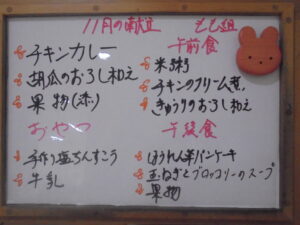 11月の献立 もも組
チキンカレー
胡瓜のおろし和え
果物(柿)
おやつ
手作り塩ちんすこう
牛乳
午前食
米粥
チキンのクリーム煮
きゅうりのおろし和え
午後食
ほうれん草パンケーキ
玉ねぎとブロッコリーのスープ
果物